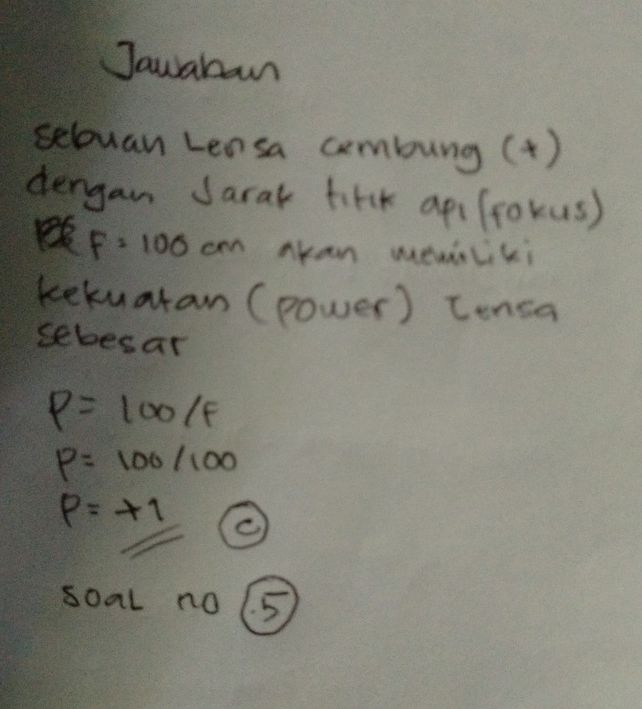 Jawaban
sebuah Lensa cembung (+)
dengan Jarak titik api (fokus)
F = 100 cm akan memiliki
kekuatan (power) Lensa
sebesar
P = 100/F
P = 100/100
P = +1 c
soal no .5